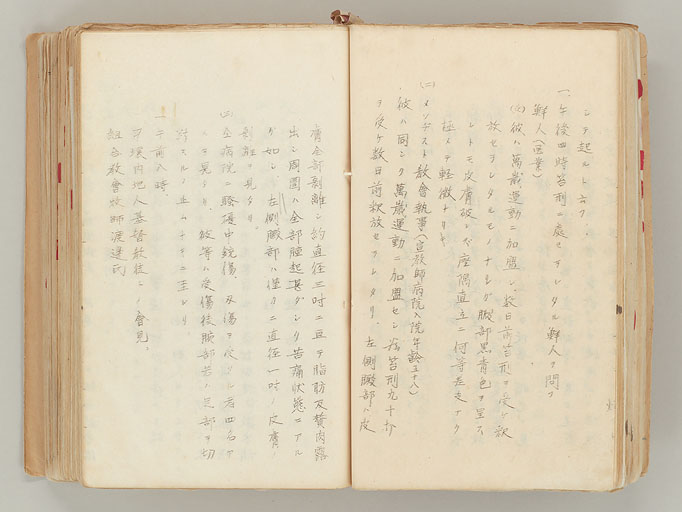 シテ起ルト云フ、
一、午後四時笞刑ニ處セラレタル鮮人ヲ問フ
鮮人(医業)
(一)彼ハ萬歳運動ニ加盟シ、数日前笞刑ヲ受ケ釈
放セラレタルモノナルガ臀部黒青色ヲ呈ス
レトモ皮膚破レズ座臥直立ニ何等差支ナク
極メテ軽微ナリキ
(二)メソヂスト教會執事(宣教師病院入院年齢五十八)
彼ハ同ジク萬歳運動ニ加盟セシ為笞刑九十打
ヲ受ケ数日前釈放セラレタリ、左側臀部ハ皮
膚全部剥離シ約直径三吋ニ亘テ脂肪及贅肉露
出シ周囲ハ全部腫起甚ダシク苦痛状態ニアル
ガ如シ、左側臀部ハ僅カニ直径一吋ノ皮膚ノ
剥離ヲ見タリ。
(三)全病院ニ騒擾中銃傷、及傷ヲ受ケタル者四名ヲ
見タリ、彼等ハ受傷後腕部若ハ足部ヲ切
スルノ止ムナキニ至レリ、
午前八時
環内地人基督教徒ト會見、
組合教會牧師渡邊氏